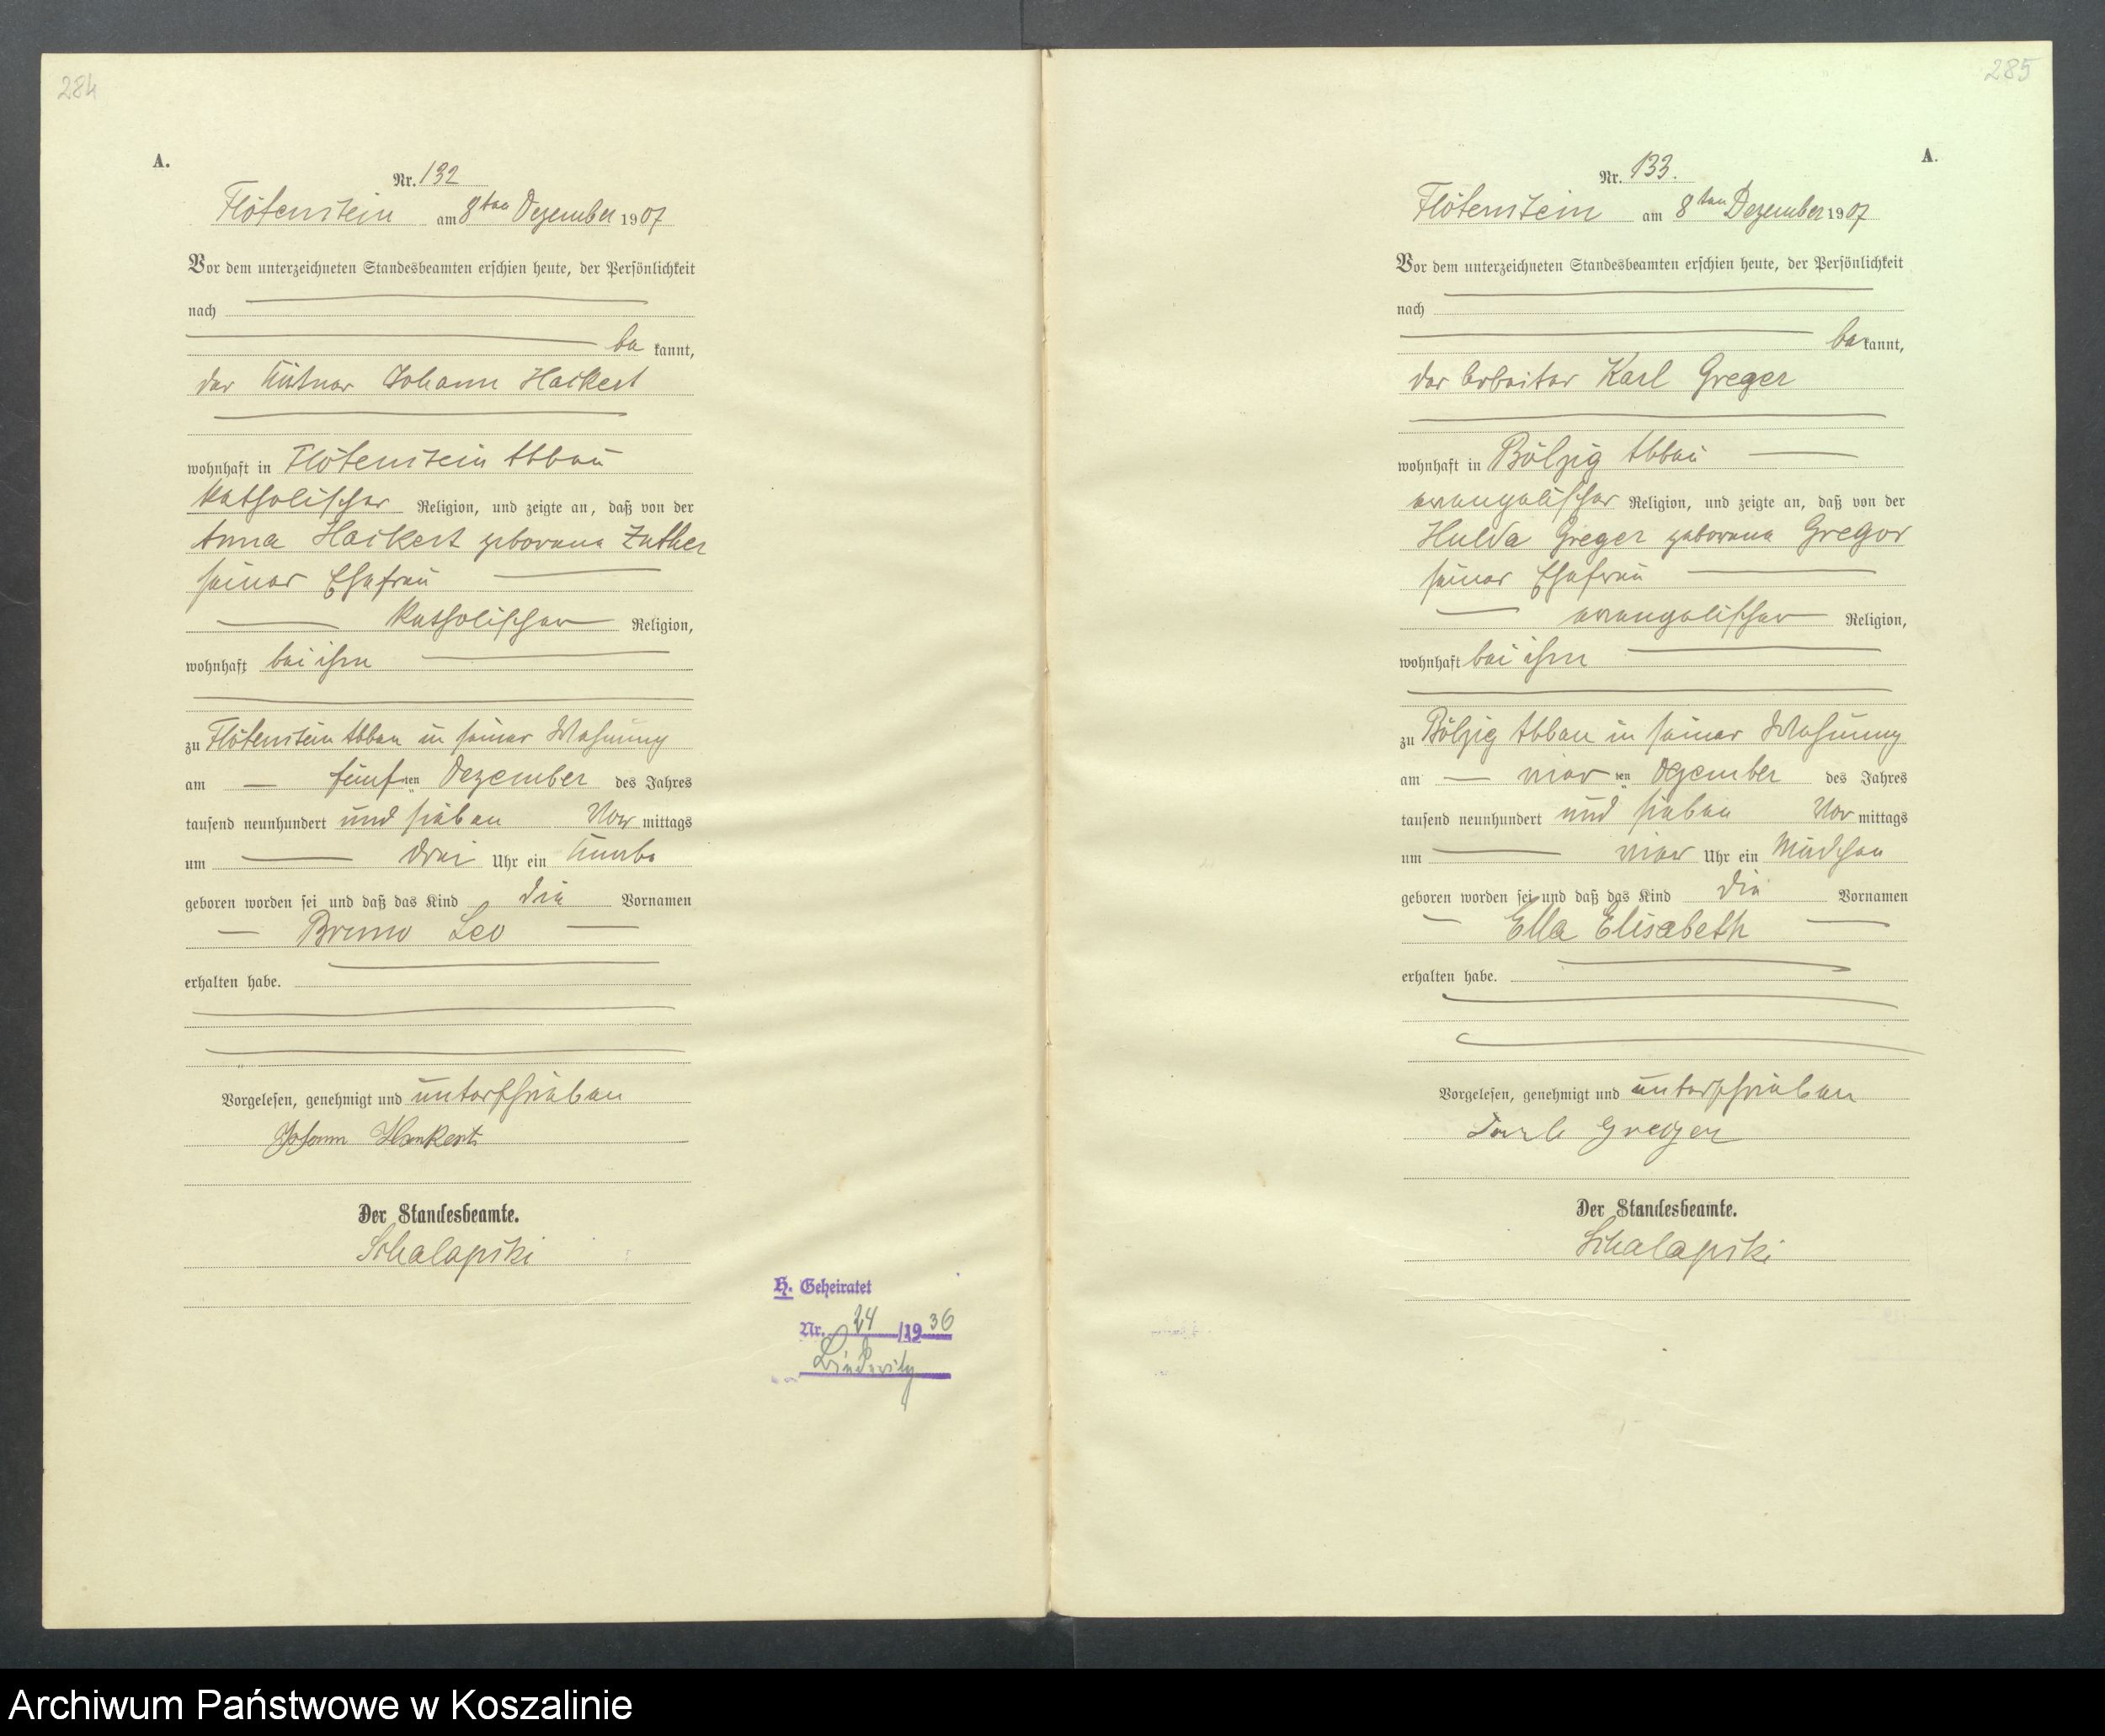 284
A.
Nr. 132
Flötenstein am 8ten Dezember 1907
Vor dem unterzeichneten Standesbeamten erschien heute, der Persönlichkeit
nach
be kannt,
der Johann Hackert
wohnhaft in Flötenstein Abbau
katholischer Religion, und zeigte an, daß von der
Anna Hackert geborene Zuther
seiner Ehefrau
katholischer Religion,
wohnhaft bei ihm
zu Flötenstein Abbau in seiner Wohnung
am fünf ten Dezember des Jahres
tausend neunhundert und sieben Vor mittags
um drei Uhr ein Knabe
geboren worden sei und daß das Kind die Vornamen
Bruno Leo
erhalten habe.
Vorgelesen, genehmigt und unterschrieben
Johann Hackert
Der Standesbeamte.
Schalapski
H. Geheiratet
Nr. 24 /1936
285
A.
Nr. 133.
Flötenstein am 8ten Dezember 1907
Vor dem unterzeichneten Standesbeamten erschien heute, der Persönlichkeit
nach
be kannt,
der Arbeiter Karl Greger
wohnhaft in Bölzig Abbau
evangelischer Religion, und zeigte an, daß von der
Hulda Greger geborene Gregor
seiner Ehefrau
evangelischer Religion,
wohnhaft bei ihm
zu Bölzig Abbau in seiner Wohnung
am vier ten Dezember des Jahres
tausend neunhundert und sieben Vor mittags
um vier Uhr ein Mädchen
geboren worden sei und daß das Kind die Vornamen
Ella Elisabeth
erhalten habe.
Vorgelesen, genehmigt und unterschrieben
Karl Greger
Der Standesbeamte.
Schalapski
Archiwum Państwowe w Koszalinie